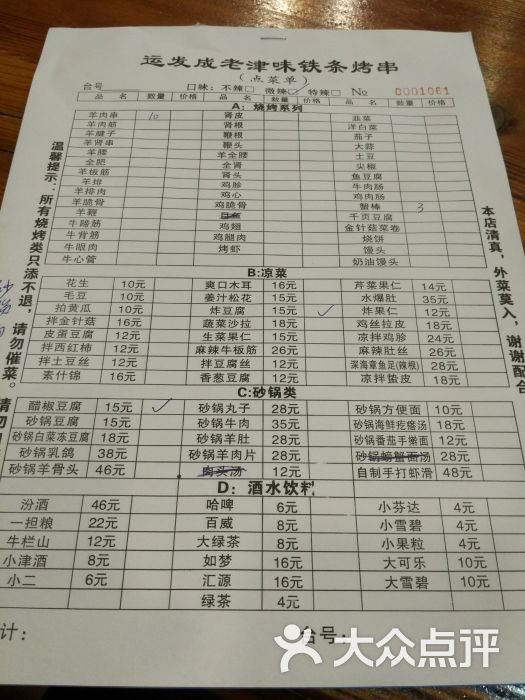 运发成老津味铁条烤串
(点菜单)
台号 口味：不辣□ 微辣□✓ 特辣□ No 0001061
品 名 数量 价格 品 名 数量 价格 品 名 数量 价格
A：烧烤系列
羊肉串 10 肾皮 韭菜
羊肉筋 肾根 洋白菜
羊腱子 鞭根 茄子
羊肾串 鞭头 大蒜
羊腰 羊全腰 土豆
全肥 全肾 尖椒
羊板筋 肾头 鱼豆腐
羊排 鸡胗 牛肉肠
羊排肉 鸡心 鸡肉肠
羊脆骨 鸡脆骨 蟹棒 3
羊鞭 千页豆腐
牛蹄筋 鸡翅 金针菇菜卷
牛背筋 鸡腿肉 烧饼
牛眼肉 烤虾 馒头
牛心管 奶油馒头
B：凉菜
花生 10元 爽口木耳 16元 芹菜果仁 14元
毛豆 10元 姜汁松花 15元 水爆肚 35元
拍黄瓜 10元 炸豆腐 15元 ✓ 炸果仁 12元
拌金针菇 16元 蔬菜沙拉 18元 鸡丝拉皮 18元
皮蛋豆腐 12元 生菜果仁 15元 凉拌鸡胗 24元
拌西红柿 12元 麻辣牛板筋 26元 麻辣肚丝 26元
拌土豆丝 12元 拌豆腐丝 12元 深海章鱼足(辣根) 28元
素什锦 16元 香葱豆腐 12元 凉拌蛰皮 18元
C：砂锅类
醋椒豆腐 15元 ✓ 砂锅丸子 28元 砂锅方便面 10元
砂锅豆腐 15元 砂锅牛肉 35元 砂锅海鲜疙瘩汤 18元
砂锅白菜冻豆腐 18元 砂锅羊肚 28元 砂锅番茄手擀面 12元
砂锅乳鸽 38元 砂锅羊肉片 28元 砂锅螃蟹面汤 28元
砂锅羊骨头 46元 卤头汤 12元 自制手打虾滑 48元
D：酒水饮料
汾酒 46元 哈啤 6元 小芬达 4元
一担粮 22元 百威 8元 小雪碧 4元
牛栏山 12元 大绿茶 8元 小果粒 4元
小津酒 8元 如梦 16元 大可乐 10元
小二 6元 汇源 16元 大雪碧 10元
绿茶 4元
计： 台号：
温馨提示：所有烧烤类只添不退，请勿催菜。
本店清真，外菜莫入，谢谢配合
请勿
大众点评